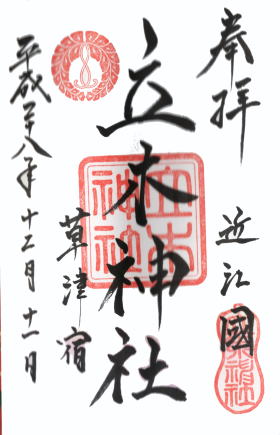 奉拝
近江國
立木神社
立木神社
草津宿
平成二十八年十二月十一日